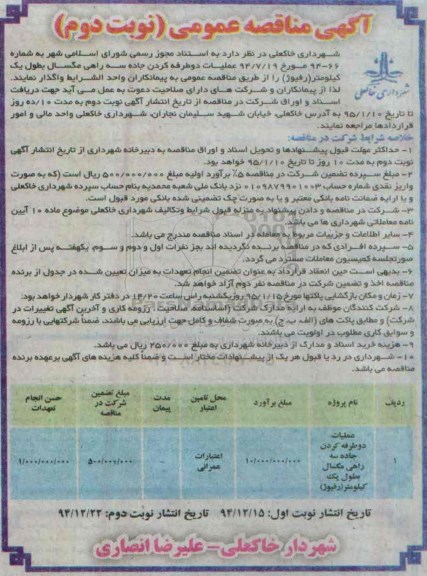 آگهی مناقصه عمومی (نوبت دوم)
شهرداری خاکعلی در نظر دارد به استناد مجوز رسمی شورای اسلامی شهر به شماره
۶۶-۹۴ مورخ ۹۴/۷/۱۹ عملیات دوطرفه کردن جاده سه راهی مگسال بطول یک
کیلومتر(رفیوژ) را از طریق مناقصه عمومی به پیمانکاران واجد الشرایط واگذار نمایند.
لذا از پیمانکاران و شرکت های دارای صلاحیت دعوت به عمل می آید جهت دریافت
اسناد و اوراق شرکت در مناقصه از تاریخ انتشار آگهی نوبت دوم به مدت ۱۰/ده روز
تا تاریخ ۹۵/۱/۱۰ به آدرس خاکعلی خیابان شهید سلیمان نجاران، شهرداری خاکعلی واحد مالی و امور
قراردادها مراجعه نمایند.
شهرداری خاکعلی
خلاصه شرایط شرکت در مناقصه:
۱- حداکثر مهلت قبول پیشنهادها و تحویل اسناد و اوراق مناقصه به دبیرخانه شهرداری از تاریخ انتشار آگهی
نوبت دوم به مدت ۱۰ روز تا تاریخ ۹۵/۱/۱۰ خواهد بود.
۲- مبلغ سپرده تضمین شرکت در مناقصه ۵٪ برآورد اولیه مبلغ ۵۰۰/۰۰۰/۰۰۰ ریال است (که به صورت
واریز نقدی شماره حساب ۰۱۰۹۸۷۹۹۰۱۰۰۳ نزد بانک ملی شعبه محمدیه بنام حساب سپرده شهرداری خاکعلی
و یا ارایه ضمانت نامه بانکی معتبر و یا به صورت چک تضمینی شده بانکی مورد قبول است.
۳- شرکت در مناقصه و دادن پیشنهاد به منزله قبول شرایط وتکالیف شهرداری خاکعلی موضوع ماده ۱۰ آیین
نامه معاملاتی شهرداری ها می باشد.
۴- سایر اطلاعات و جزییات مربوط به معامله در اسناد مناقصه مندرج می باشد.
۵- سپرده افرادی که در مناقصه برنده نگردیده اند بجز نفرات اول و دوم و سوم، یکهفته پس از ابلاغ
صورتجلسه کمیسیون معاملات مسترد می گردد.
۶- بدیهی است حین انعقاد قرارداد به عنوان تضمین انجام تعهدات به میزان تعیین شده در جدول از برنده
مناقصه اخذ و تضمین شرکت در مناقصه نفر دوم آزاد خواهد شد.
۷- زمان و مکان بازگشایی پاکتها مورخ ۹۵/۱/۱۵ روزیکشنبه راس ساعت ۱۴/۲۰ در دفتر کار شهردار خواهد بود:
۸- شرکت کنندگان موظف به ارایه مدارک شرکت (اساسنامه، صلاحیت، رزومه کاری و آخرین آگهی تغییرات در
شرکت) و مطابق پاکت های (الف، ب، ج) به صورت شفاف و کامل جهت ارزیابی می باشند. ضمناً شرکتهایی با رزومه
و سوابق کاری مطلوب در اولویت می باشند.
۹- هزینه خرید اسناد و مدارک از دبیرخانه شهرداری به مبلغ ۲۵۰/۰۰۰ ریال می باشد.
۱۰- شهرداری در رد یا قبول هر یک از پیشنهادات مختار است و ضمناً کلیه هزینه های آگهی برعهده برنده
مناقصه می باشد.
ردیف نام پروژه مبلغ برآورد محل تامین اعتبار مدت پیمان مبلغ تضمین شرکت در مناقصه حسن انجام تعهدات
۱ عملیات دوطرفه کردن جاده سه راهی مگسال بطول یک کیلومتر(رفیوژ) ۱۰/۰۰۰/۰۰۰/۰۰۰ اعتبارات عمرانی - ۵۰۰/۰۰۰/۰۰۰ ۱/۰۰۰/۰۰۰/۰۰۰
تاریخ انتشار نوبت اول: ۹۴/۱۲/۱۵ تاریخ انتشار نوبت دوم: ۹۴/۱۲/۲۲
شهردار خاکعلی- علیرضا انصاری